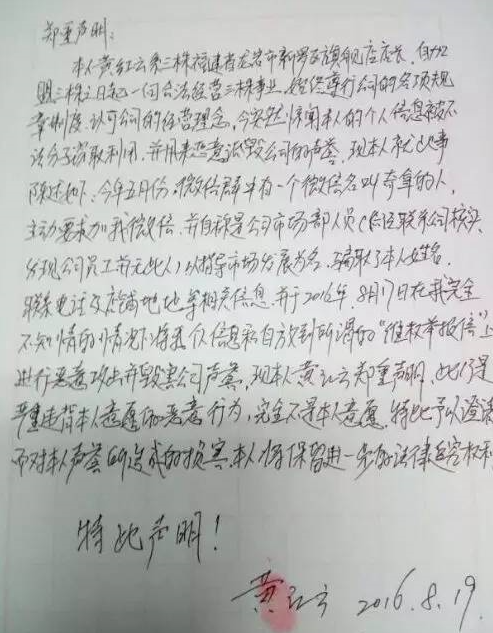 郑重声明:
本人黄红云系三株福建省龙岩市新罗区旗舰店店长,自加
盟三株之日起一向合法经营三株事业,始终遵行公司的各项规
章制度,认可公司的经营理念,今突然惊闻本人的个人信息被不
法分子盗取利用,并用来恶意诋毁公司的声誉,现本人就此事
陈述如下:今年五月份,微信群中有一个微信名叫奇隼的人,
主动要求加我微信,并自称是公司市场部人员(后经联系公司核实,
发现公司员工并无此人)以指导市场发展为名,骗取了本人姓名,
联系电话及店铺地址等相关信息,并于2016年8月17日在我完全
不知情的情况下将我个人信息私自放到所谓的"维权举报信"上
进行恶意攻击并毁害公司声誉,现本人黄红云郑重声明,此行是
严重违背本人意愿的恶意行为,完全不是本人意愿,特此予以澄清
而对本人声誉所造成的损害,本人将保留进一步的法律追究权利
特此声明!
黄红云 2016.8.19.